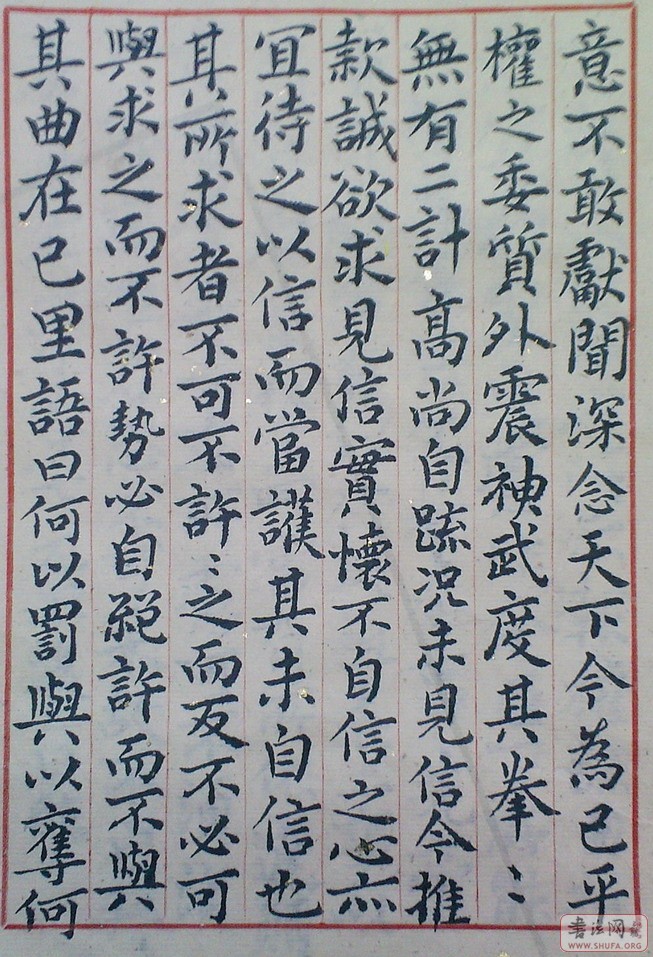 意不敢獻聞深念天下今為已平
權之委質外震神武度其拳〻
無有二計高尚自疏況未見信今推
款誠欲求見信實懷不自信之心亦
宜待之以信而當護其未自信也
其所求者不可不許〻之而反不必可
與求之而不許勢必自絕許而不與
其曲在己里語曰何以罰與以奪何
書法网
WWW.SHUFA.ORG